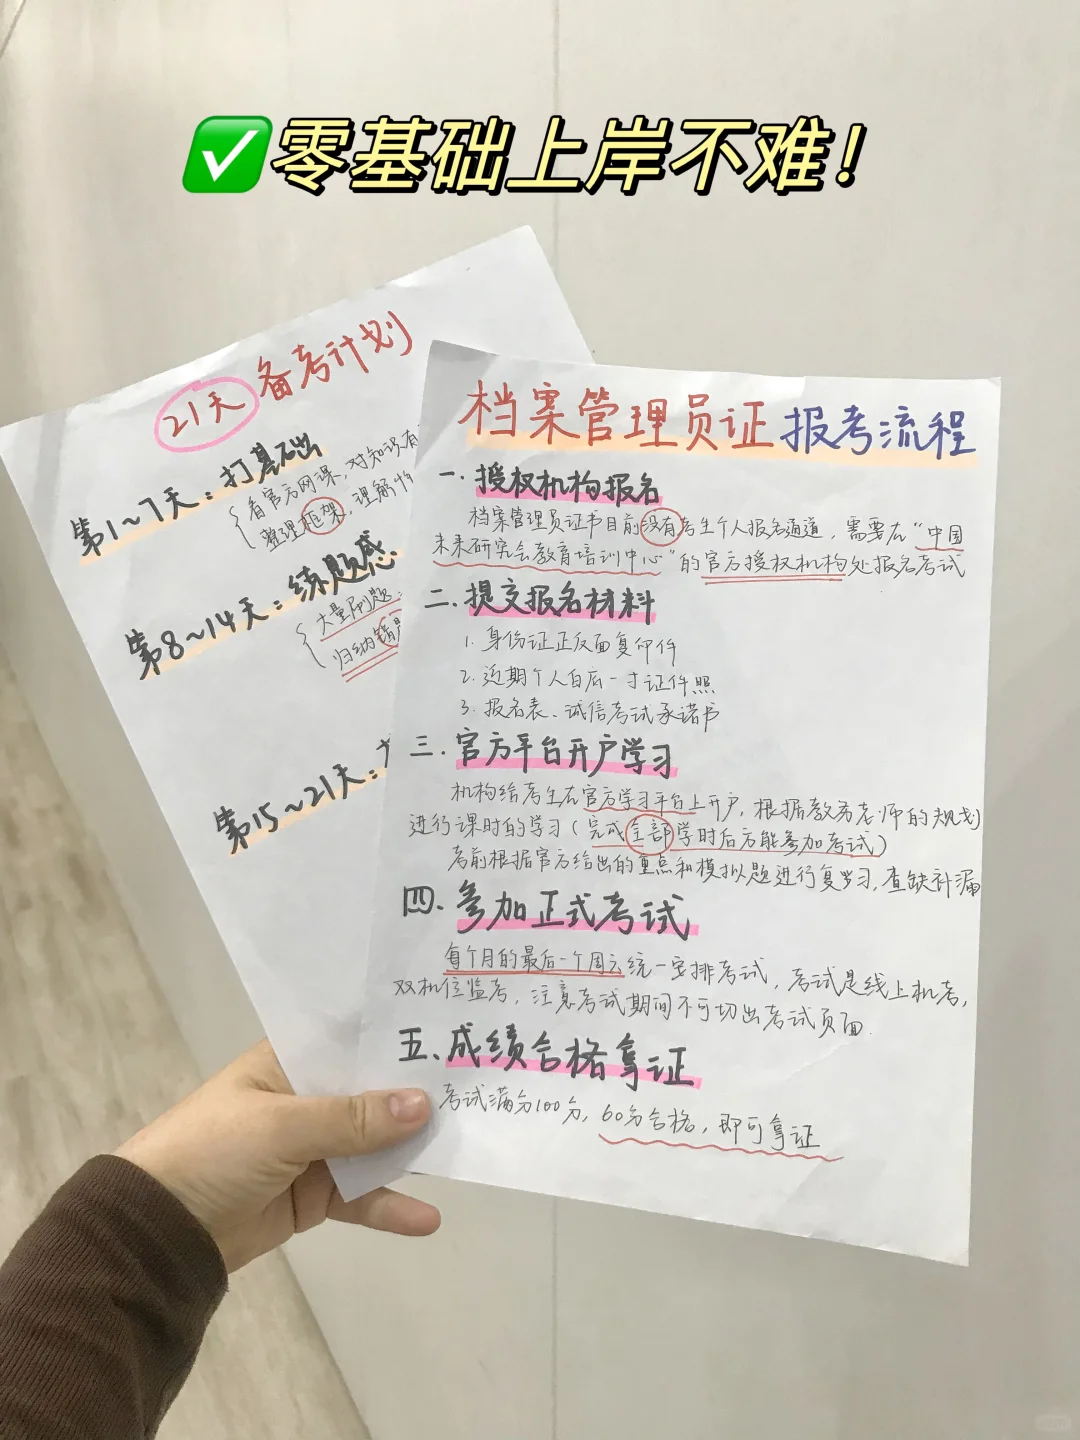 ✅零基础上岸不难！
21天备考计划
第1~7天：打基础
看官方网课，对知识有
整理框架，理解
第8~14天：练题感
大量刷题
归纳错
第15~21天：
档案管理员证报考流程
一.授权机构报名
档案管理员证书目前没有考生个人报名通道，需要在“中国
未来研究会教育培训中心”的官方授权机构处报名考试
二.提交报名材料
1.身份证正反面复印件
2.近期个人白底一寸证件照
3.报名表、诚信考试承诺书
三.官方平台开户学习
机构给考生在官方学习平台上开户，根据教务老师的规划
进行课时的学习（完成全部学时后方能参加考试）
考前根据官方给出的重点和模拟题进行复习，查缺补漏
四.参加正式考试
每个月的最后一个周六统一安排考试，考试是线上机考，
双机位监考，注意考试期间不可切出考试页面.
五.成绩合格拿证
考试满分100分，60分合格，即可拿证